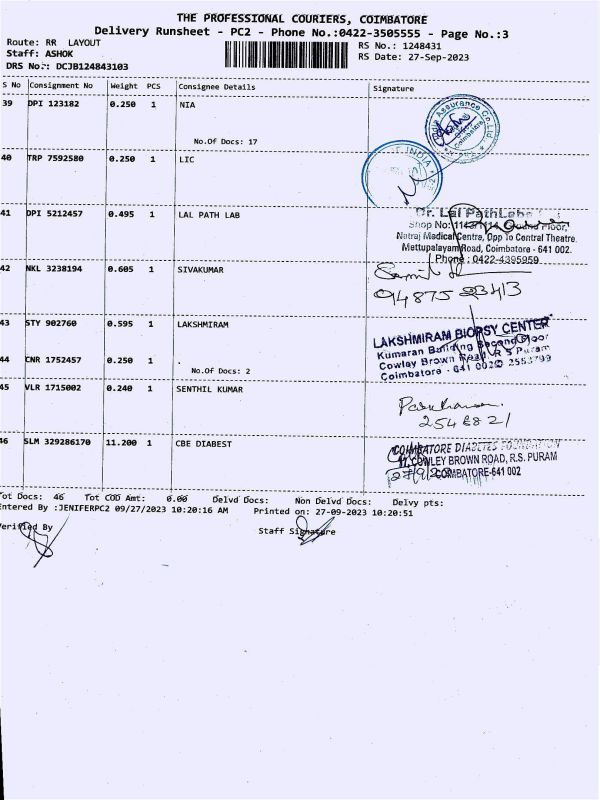 THE PROFESSIONAL COURIERS, COIMBATORE
Delivery Runsheet - PC2 - Phone No.:0422-3505555 - Page No.:3
Route: RR LAYOUT
Staff: ASHOK
DRS No.: DCJB124843103
RS No.: 1248431
RS Date: 27-Sep-2023
S No Consignment No Weight PCS Consignee Details Signature
39 DPI 123182 0.250 1 NIA
No.Of Docs: 17
Assurance Co.Ltd.
Coimbatore
40 TRP 7592580 0.250 1 LIC
INDIA
41 DPI 5212457 0.495 1 LAL PATH LAB
Dr. Lal PathLabs
Shop No: Floor,
Natraj Medical Centre, Opp To Central Theatre.
Mettupalayam Road, Coimbatore - 641 002.
Phone : 0422-4395959
42 NKL 3238194 0.605 1 SIVAKUMAR
94875 23413
43 STY 902760 0.595 1 LAKSHMIRAM
LAKSHMIRAM BIOPSY CENTER
Kumaran Building Second Floor
Cowley Brown Road, R S Puram
Coimbatore - 641 002
44 CNR 1752457 0.250 1 .
No.Of Docs: 2
45 VLR 1715002 0.240 1 SENTHIL KUMAR
2546821
46 SLM 329286170 11.200 1 CBE DIABEST
COIMBATORE DIABETES FOUNDATION
COWLEY BROWN ROAD, R.S. PURAM
COIMBATORE-641 002
Tot Docs: 46 Tot COD Amt: 0.00 Delvd Docs: Non Delvd Docs: Delvy pts:
Entered By :JENIFERPC2 09/27/2023 10:20:16 AM Printed on: 27-09-2023 10:20:51
Verified By Staff Signature